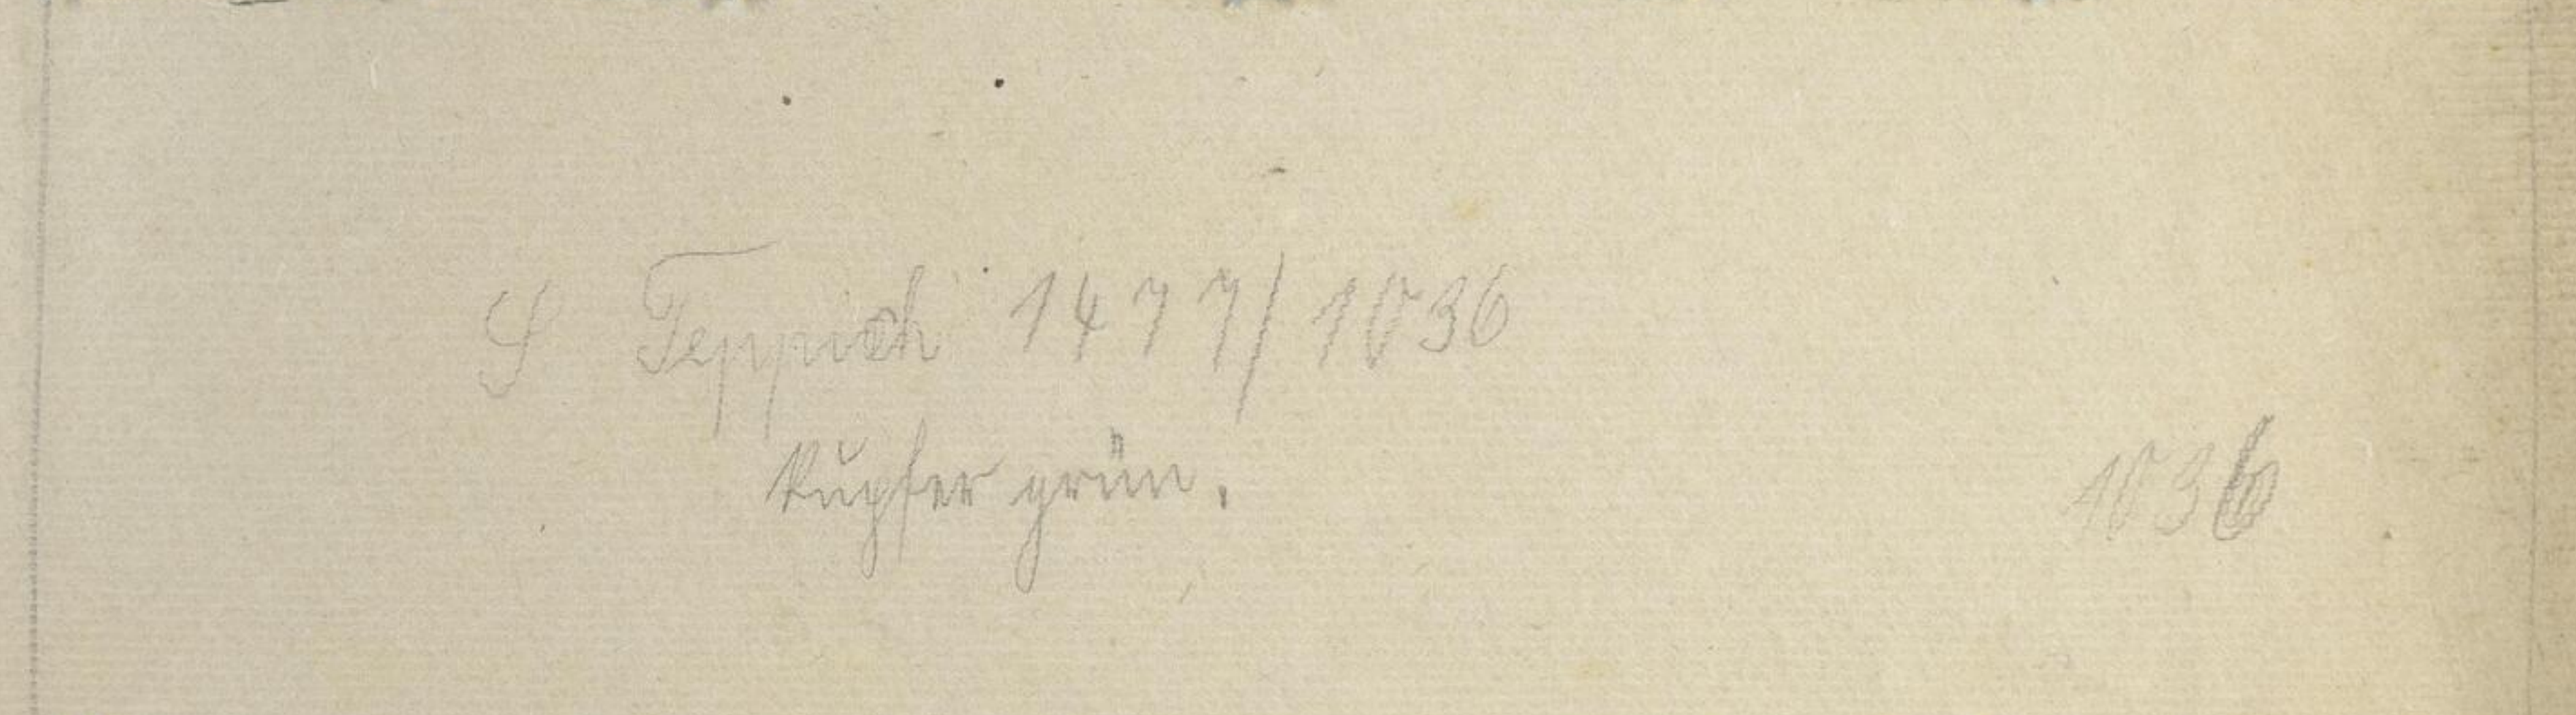 S Teppich 1477/1036
Kupfer grün.
1036